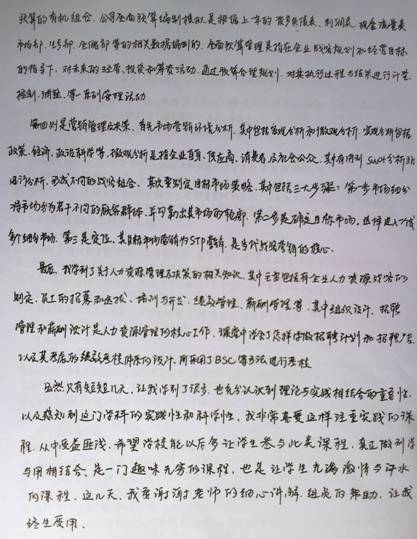 预算的有机组合。公司全面预算编制模拟是根据上年的资产负债表、利润表、现金流量表
市场部、生产部、仓储部等的相关数据编制的。全面预算管理是指在企业战略规划和经营目标
的指导下,对未来的经营、投资和筹资活动,通过预算合理规划,对其执行过程与结果进行计算、
控制、调整,等一系列管理活动
第四则是营销管理与决策。首先市场营销环境分析,其中包括宏观分析和微观分析,宏观分析包括
政策、经济、政治科学等,微观分析是指企业自身、供应商、消费者及社会公众,其中有用到SWOT分析法
进行分析,形成不同的战略组合。其次要制定目标市场策略,其中包括三大步骤:第一步市场细分
将市场分为若干不同的顾客群体,并勾勒出其市场的轮廓。第二步是确定目标市场,选择进入一个或
多个细分市场。第三是定位,其目标市场营销为STP营销,是当代战略营销的核心。
最后,我学到了关于人力资源管理与决策的相关知识,其中主要包括有企业人力资源战略的
制定,员工的招募和选拔、培训与开发、绩效管理,薪酬管理等,其中组织设计、招聘
管理和薪酬设计是人力资源管理的核心工作。课堂中学会了怎样去做招聘计划和招聘广告
以及其员工的绩效考核体系的设计,所采用了BSC等方法进行考核
虽然只有短短几天,让我学到了很多,也充分认识到理论与实践相结合的重要性,
以及感知到这门学科的实践性和科学性,我非常喜爱这样注重实践的课
程,从中受益匪浅,希望学校能以后多让学生参与此类课程,真正做到学
与用相结合,是一门趣味无穷的课程,也是让学生充满激情与汗水
的课程,这几天,我要谢谢老师的细心讲解,组员的帮助,让我
终生受用。